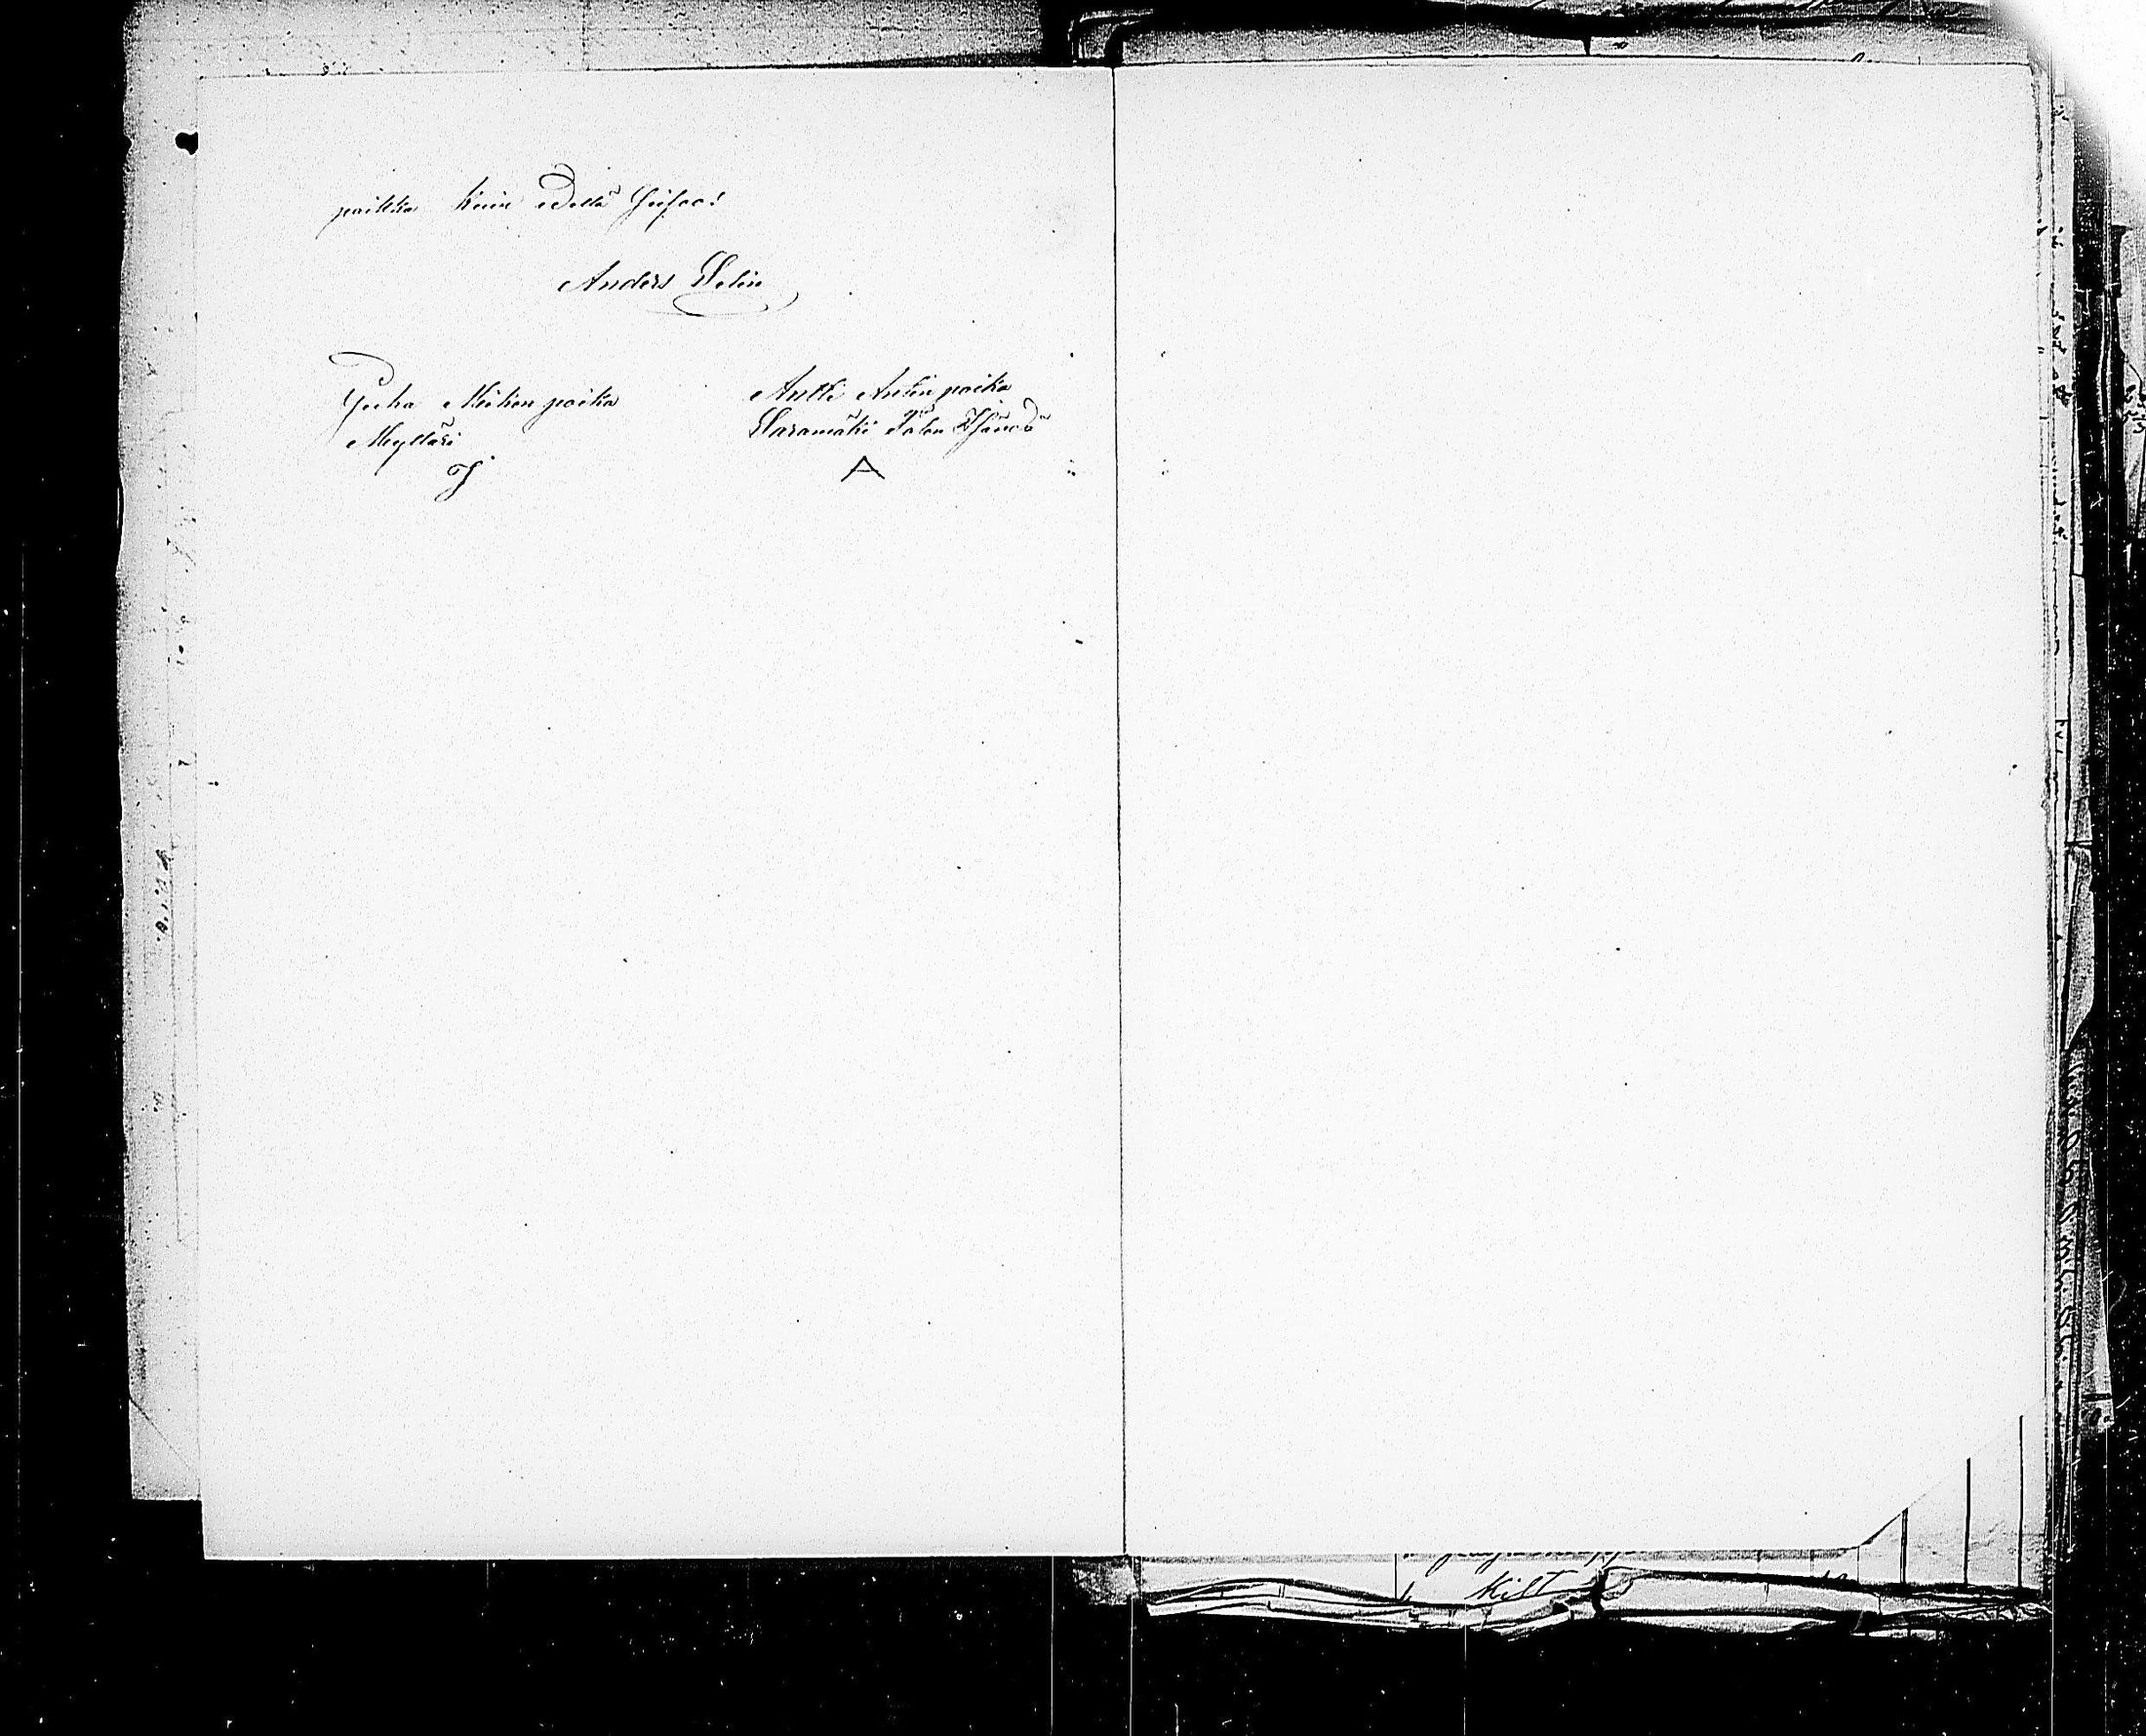 paikka kuin Edellä Seisoo!
Anders Selin
Juha Mickon poika
Mylläri
J
Antti Antin poika
Saramäki Talon Isändä
A
Kilt